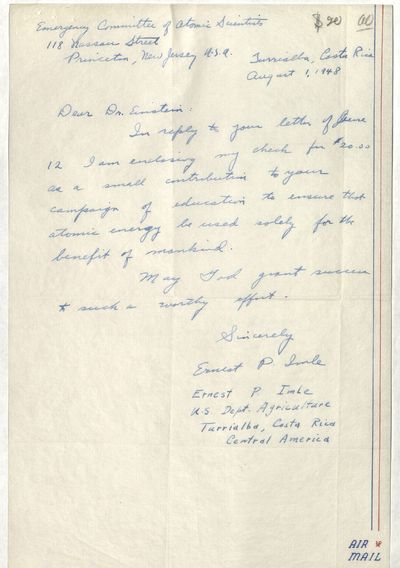 Emergency Committee of Atomic Scientists
$20
118 Nassau Street
Princeton, New Jersey U.S.A.
Turrialba, Costa Rica
August 1, 1948
Dear Dr. Einstein:
In reply to your letter of June
12 I am enclosing my check for $20.00
as a small contribution to your
campaign of education to ensure that
atomic energy be used solely for the
benefit of mankind.
May God grant success
to such a worthy effort.
Sincerely
Ernest P. Imle
Ernest P. Imle
U.S. Dept. Agriculture
Turrialba, Costa Rica
Central America
AIR
MAIL